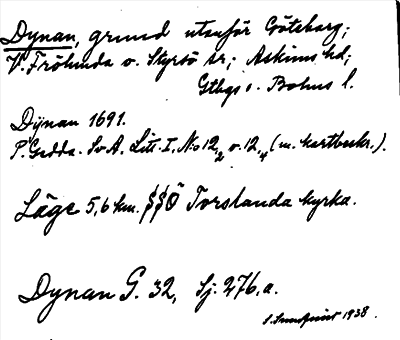 Dynan, grund utanför Göteborg;
V. Frölunda o. Styrsö sr; Askims hd;
Gtbgs o. Bohus l.
Dÿnan 1691.
P. Gedda. SvA. Litt. I. No 12,2 o. 12,4 (m. kartbeskr.).
Läge 5,6 km. SSÖ Torslanda kyrka.
Dynan G. 32, Sj. 276, a.
S. Sundqvist 1938.